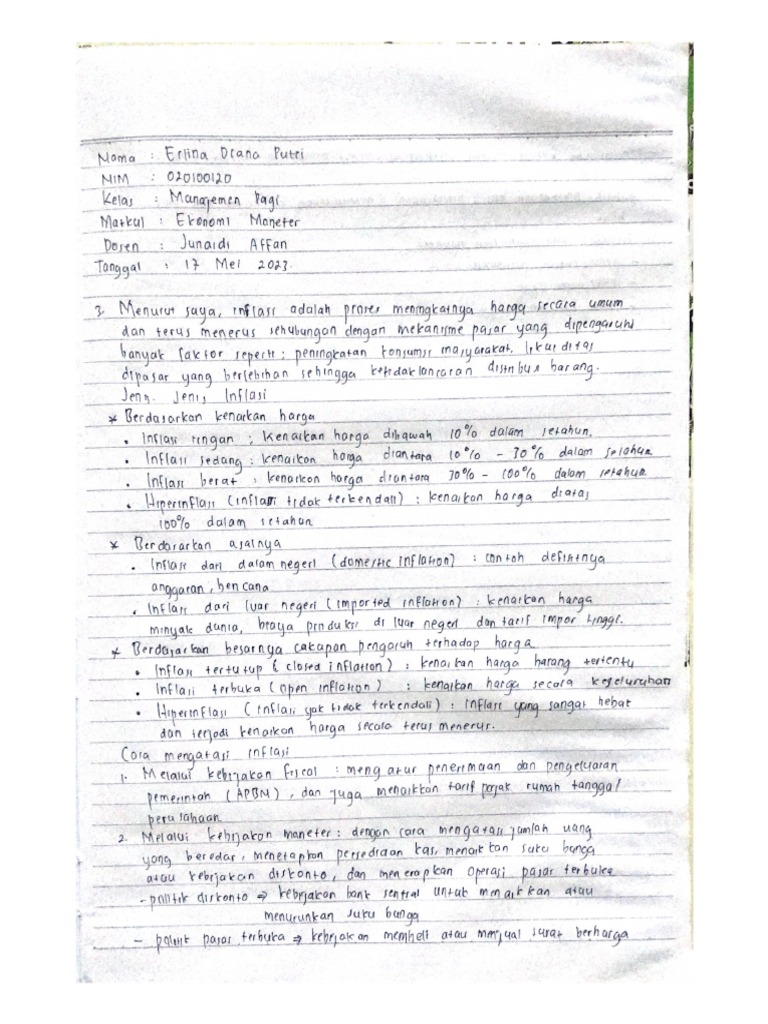 Nama : Erlina Diana Putri
NIM : 020100120
Kelas : Manajemen Pagi
Matkul : Ekonomi Moneter
Dosen : Junaidi Affan
Tanggal : 17 Mei 2023.
3. Menurut saya, inflasi adalah proses meningkatnya harga secara umum
dan terus menerus sehubungan dengan mekanisme pasar yang dipengaruhi
banyak faktor seperti : peningkatan konsumsi masyarakat, likuiditas
dipasar yang berlebihan sehingga ketidaklancaran distribusi barang.
Jenis-Jenis Inflasi
* Berdasarkan kenaikan harga
• Inflasi ringan : Kenaikan harga dibawah 10% dalam setahun.
• Inflasi sedang : kenaikan harga diantara 10% - 30% dalam setahun.
• Inflasi berat : kenaikan harga diantara 30% - 100% dalam setahun.
• Hiperinflasi (inflasi tidak terkendali) : kenaikan harga diatas
100% dalam setahun
* Berdasarkan asalnya
• Inflasi dari dalam negeri (domestic inflation) : contoh defisitnya
anggaran, bencana
• Inflasi dari luar negeri (imported inflation) : kenaikan harga
minyak dunia, biaya produksi di luar negeri dan tarif impor tinggi.
* Berdasarkan besarnya cakapan pengaruh terhadap harga
• Inflasi tertutup (closed inflation) : kenaikan harga barang tertentu
• Inflasi terbuka (open inflation) : kenaikan harga secara keseluruhan
• Hiperinflasi (inflasi tidak terkendali) : inflasi yang sangat hebat
dan terjadi kenaikan harga secara terus menerus.
Cara mengatasi inflasi
1. Melalui kebijakan fiscal : mengatur penerimaan dan pengeluaran
pemerintah (APBN), dan juga menaikkan tarif pajak rumah tangga/
perusahaan
2. Melalui kebijakan moneter : dengan cara mengatasi jumlah uang
yang beredar, menetapkan persediaan kas, menaikkan suku bunga
atau kebijakan diskonto, dan menerapkan operasi pasar terbuka
- politik diskonto ⇒ kebijakan bank sentral untuk menaikkan atau
menurunkan suku bunga
- politik pasar terbuka ⇒ kebijakan membeli atau menjual surat berharga